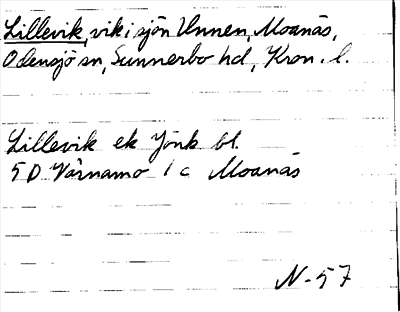 Lillevik, vik i sjön Unnen, Moanäs,
Odensjö sn, Sunnerbo hd, Kron. l.
Lillevik ek Jönk bl.
5D Värnamo 1c Moanäs
N-57